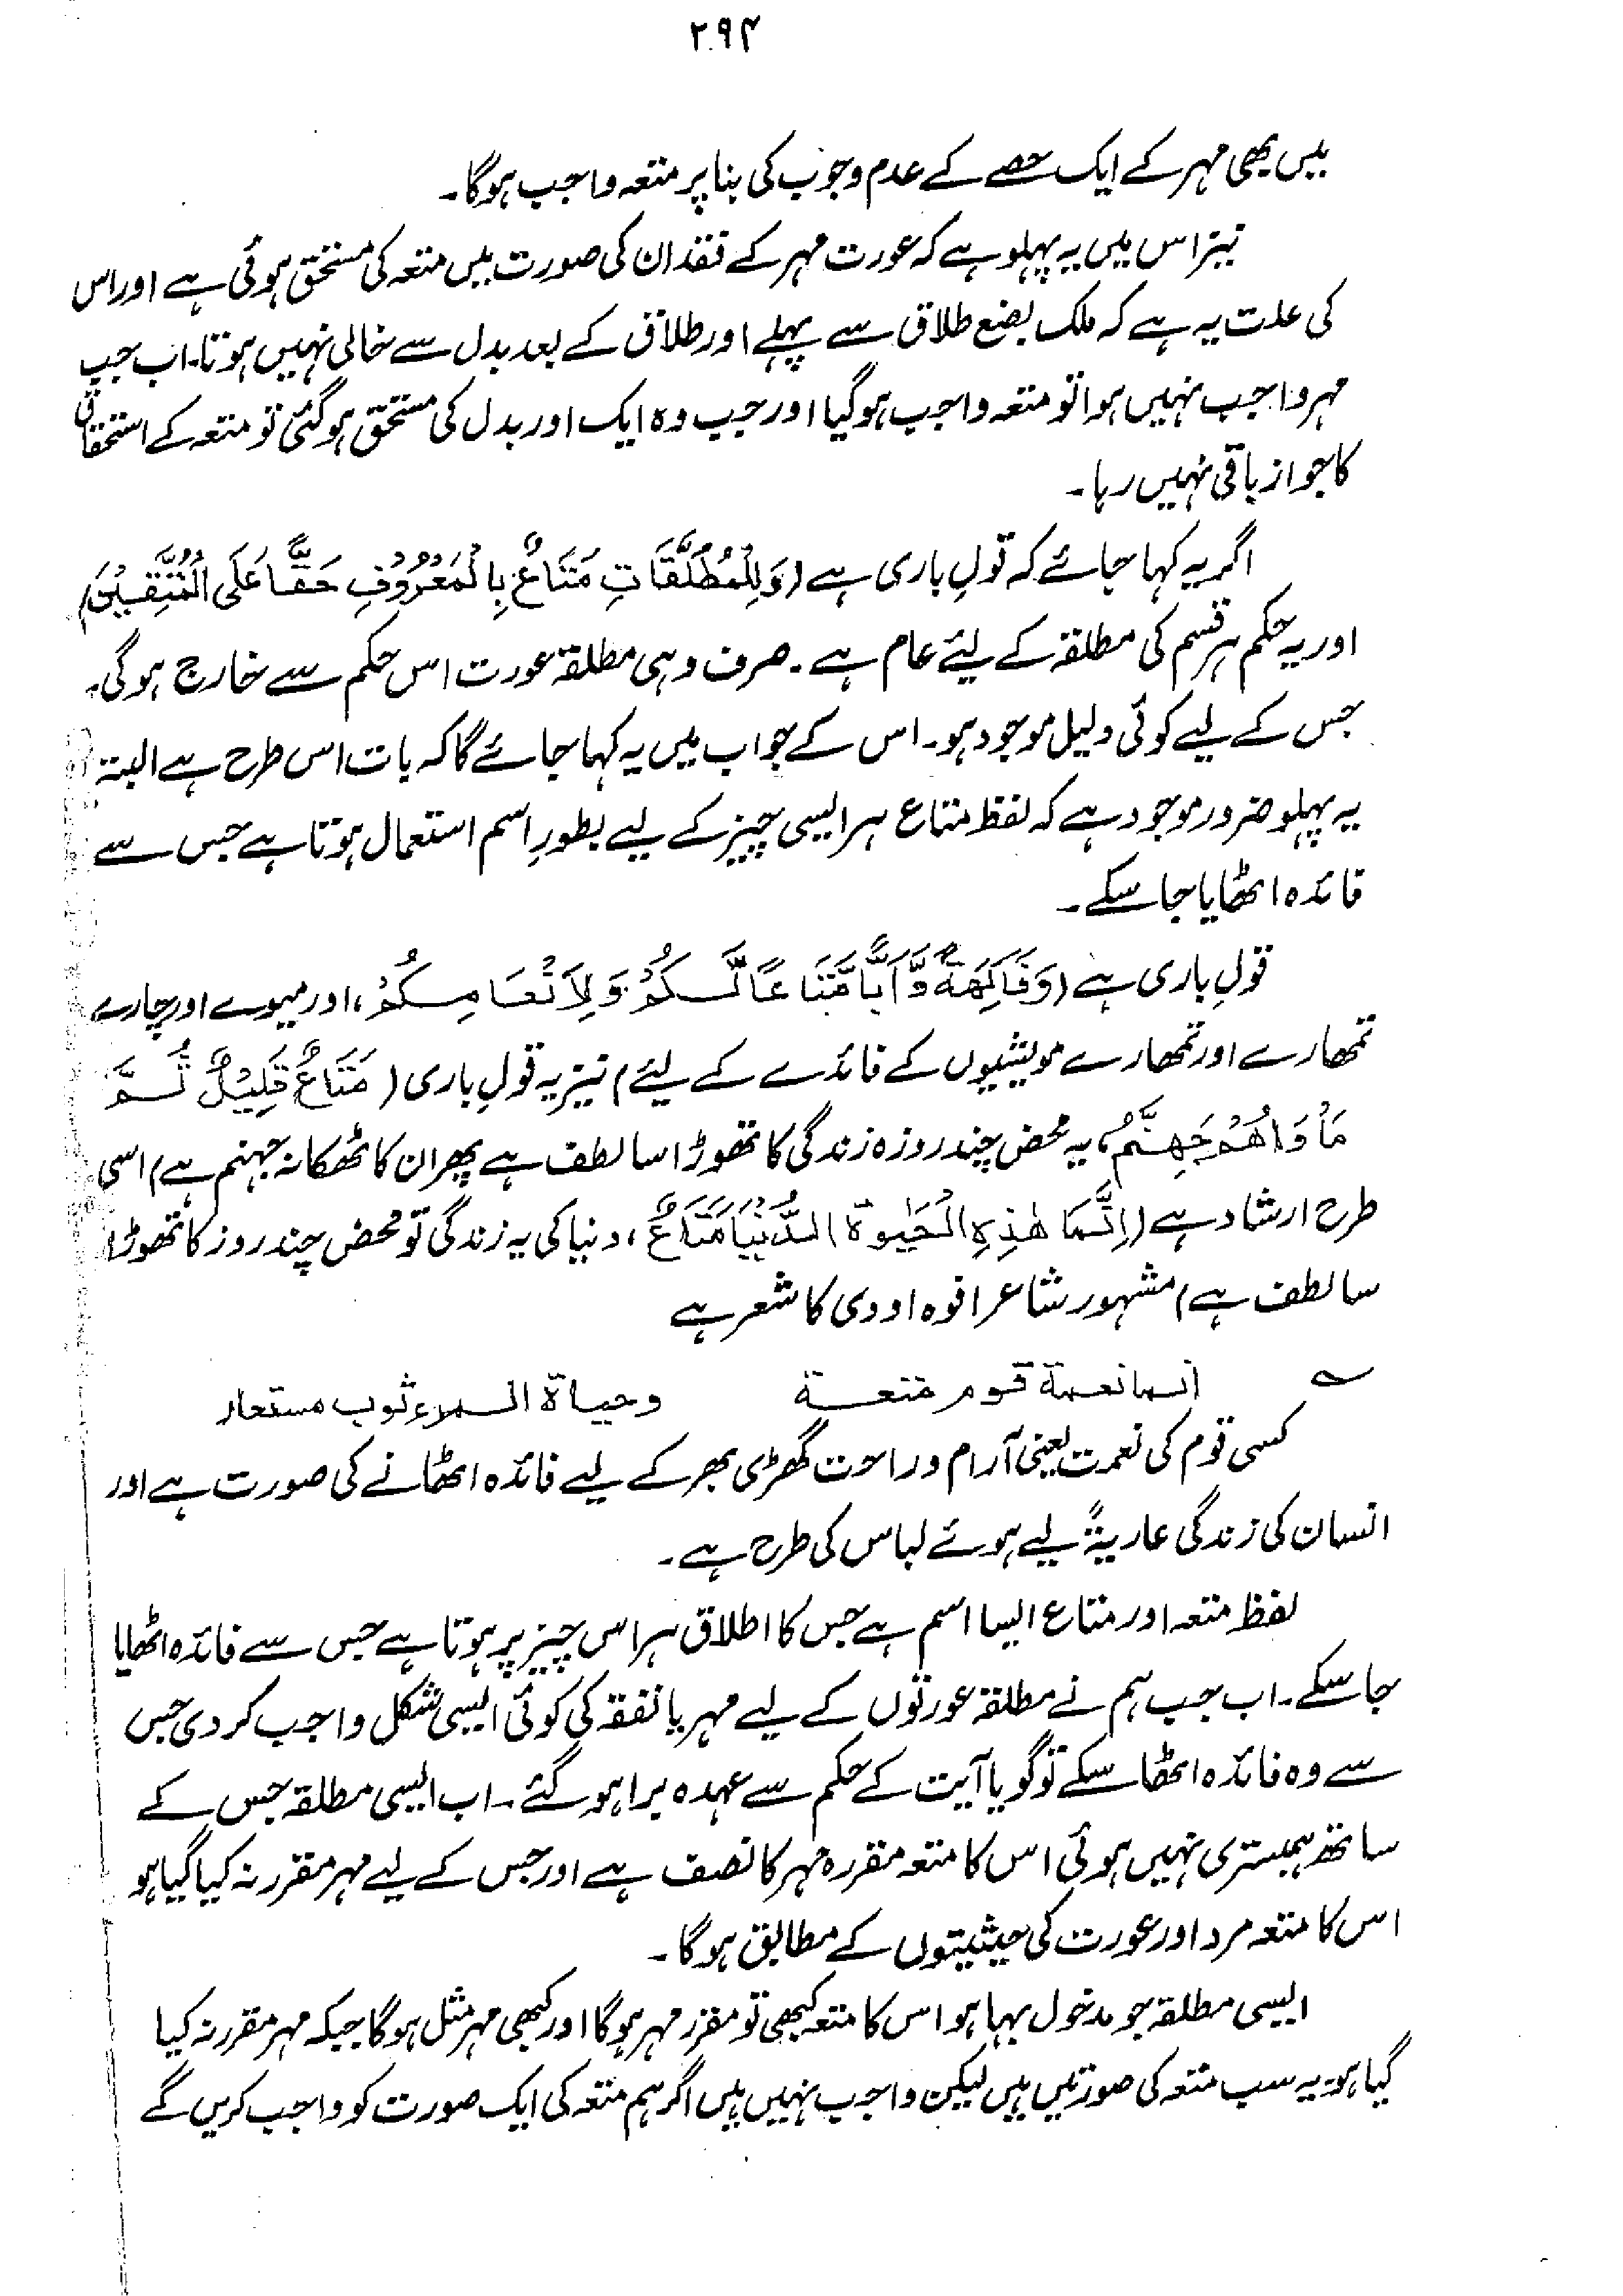 ۲۹۴
میں بھی مہر کے ایک حصے کے عدم وجوب کی بنا پر متعہ واجب ہوگا۔
نیز اس میں یہ پہلو ہے کہ عورت مہر کے فقدان کی صورت میں متعہ کی مستحق ہوئی ہے اور اس
کی علت یہ ہے کہ ملک بضع طلاق سے پہلے اور طلاق کے بعد بدل سے خالی نہیں ہوتا۔ اب جب
مہر واجب نہیں ہوا تو متعہ واجب ہوگیا اور جب وہ ایک اور بدل کی مستحق ہوگئی تو متعہ کے استحقاق
کا جواز باقی نہیں رہا۔
اگر یہ کہا جائے کہ قولِ باری ہے (وَلِلْمُطَلَّقَاتِ مَتَاعٌ بِالْمَعْرُوْفِ حَقًّا عَلَی الْمُتَّقِیْنَ)
اور یہ حکم ہر قسم کی مطلقہ کے لیئے عام ہے۔ صرف وہی مطلقہ عورت اس حکم سے خارج ہوگی۔
جس کے لیے کوئی دلیل موجود ہو۔ اس کے جواب میں یہ کہا جائے گا کہ بات اس طرح ہے البتہ
یہ پہلو ضرور موجود ہے کہ لفظ متاع ہر ایسی چیز کے لیے بطورِ اسم استعمال ہوتا ہے جس سے
فائدہ اٹھایا جا سکے۔
قولِ باری ہے (وَفَاکِهَةً وَّاَبًّا مَّتَاعًا لَّکُمْ وَلِاَنْعَامِکُمْ، اور میوے اور چارے
تمھارے اور تمھارے مویشیوں کے فائدے کے لیئے) نیز یہ قولِ باری (مَتَاعٌ قَلِیْلٌ ثُمَّ
مَاْوَاهُمْ جَهَنَّمُ، یہ محض چند روزہ زندگی کا تھوڑا سا لطف ہے پھر ان کا ٹھکانہ جہنم ہے) اسی
طرح ارشاد ہے (اِنَّمَا هٰذِهِ الْحَیٰوةُ الدُّنْیَا مَتَاعٌ، دنیا کی یہ زندگی تو محض چند روز کا تھوڑا
سا لطف ہے) مشہور شاعر افوہ اودی کا شعر ہے
؎ انما نعمة قوم متعة وحیاة المرء ثوب مستعار
کسی قوم کی نعمت یعنی آرام و راحت گھڑی بھر کے لیے فائدہ اٹھانے کی صورت ہے اور
انسان کی زندگی عاریۃً لیے ہوئے لباس کی طرح ہے۔
لفظ متعہ اور متاع ایسا اسم ہے جس کا اطلاق ہر اس چیز پر ہوتا ہے جس سے فائدہ اٹھایا
جا سکے۔ اب جب ہم نے مطلقہ عورتوں کے لیے مہر یا نفقہ کی کوئی ایسی شکل واجب کر دی جس
سے وہ فائدہ اٹھا سکے تو گویا آیت کے حکم سے عہدہ برا ہو گئے۔ اب ایسی مطلقہ جس کے
ساتھ ہمبستری نہیں ہوئی اس کا متعہ مقررہ مہر کا نصف ہے اور جس کے لیے مہر مقرر نہ کیا گیا ہو
اس کا متعہ مرد اور عورت کی حیثیتوں کے مطابق ہوگا۔
ایسی مطلقہ جو مدخول بہا ہو اس کا متعہ کبھی تو مقرر مہر ہوگا اور کبھی مہر مثل ہوگا جبکہ مہر مقرر نہ کیا
گیا ہو۔ یہ سب متعہ کی صورتیں ہیں لیکن واجب نہیں ہیں اگر ہم متعہ کی ایک صورت کو واجب کریں گے